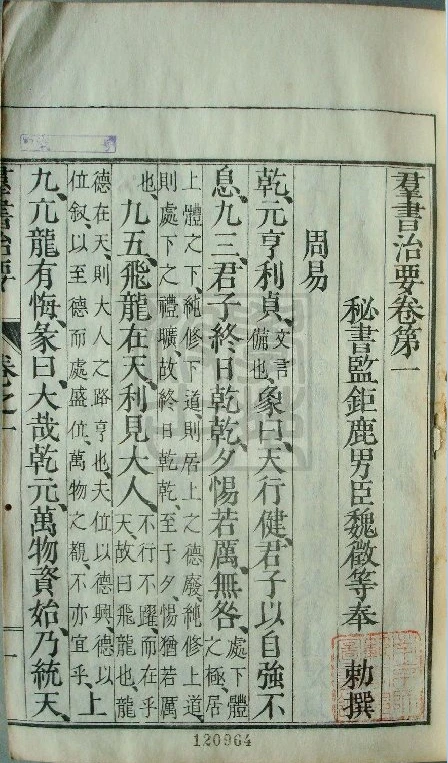 羣書治要卷第一
秘書監鉅鹿男臣魏徵等奉　勅撰
周易
乾、元亨利貞、文言備也、象曰、天行健、君子以自強不
息、九三、君子終日乾乾、夕惕若厲、無咎、處下體之極、居
上體之下、純修下道、則居上之德廢、純修上道、
則處下之禮曠、故終日乾乾、至于夕、惕猶若厲
也、九五、飛龍在天、利見大人、不行不躍、而在乎天、故曰飛龍也、龍
德在天、則大人之路亨也、夫位以德興、德以
位敘、以至德而處盛位、萬物之覩、不亦宜乎、上
九、亢龍有悔、彖曰、大哉乾元、萬物資始、乃統天、
羣書治要
卷之一
一
120964